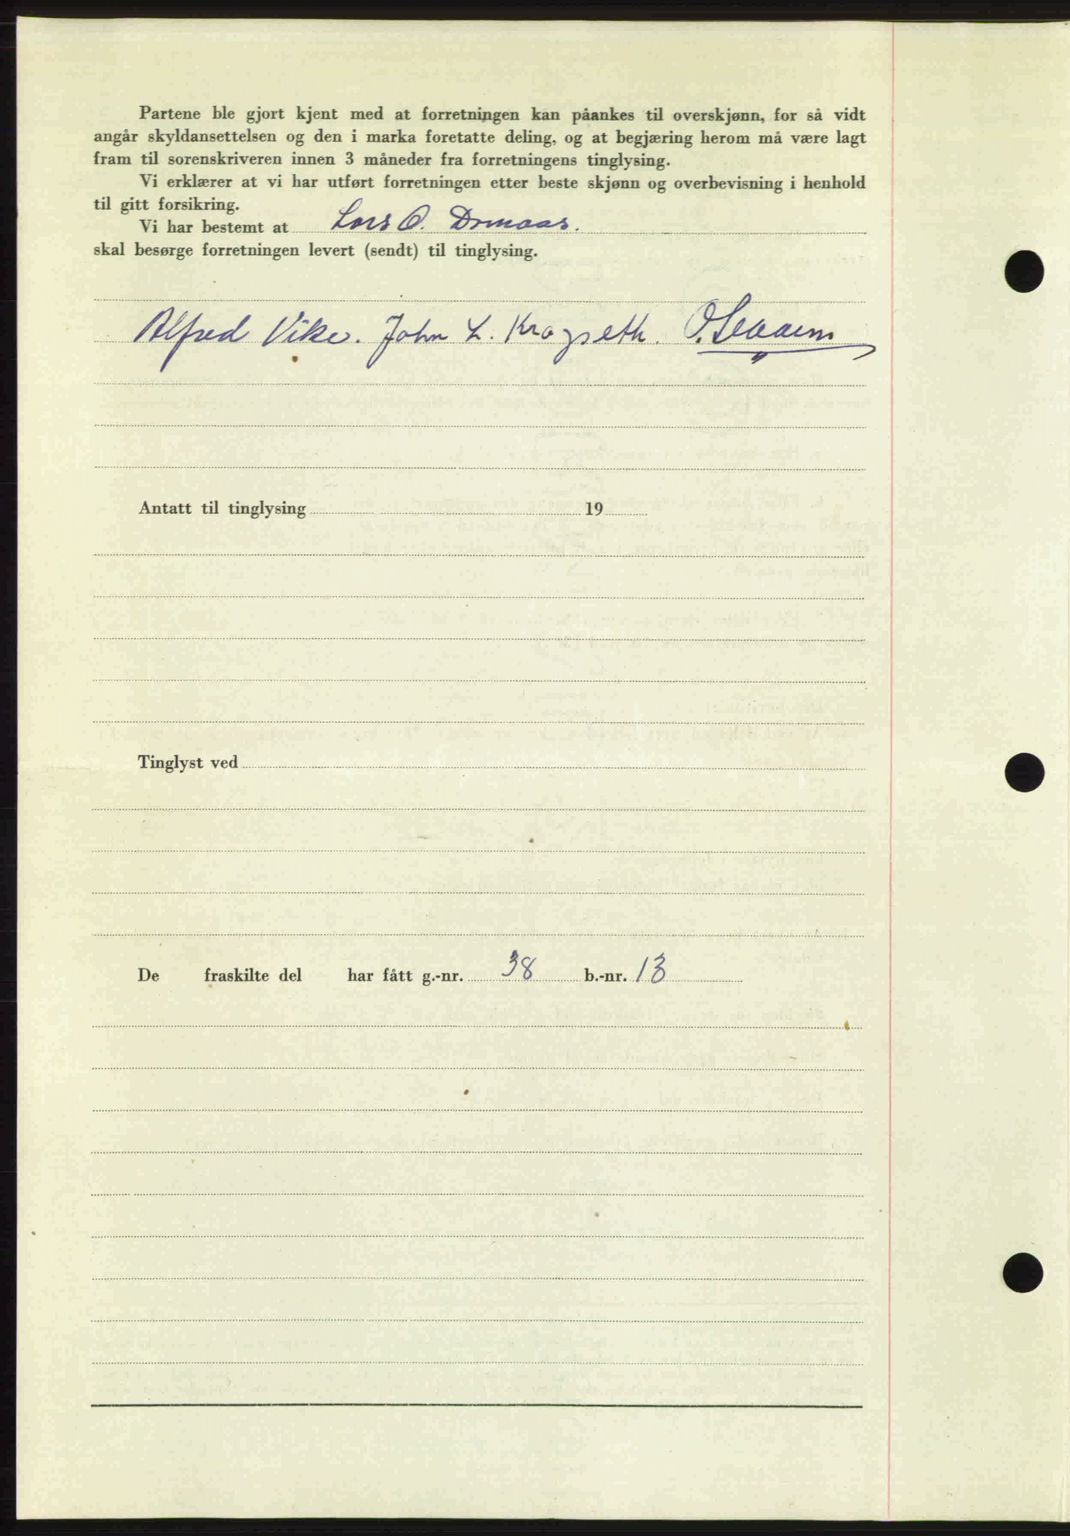 Partene ble gjort kjent med at forretningen kan påankes til overskjønn, for så vidt
angår skyldansettelsen og den i marka foretatte deling, og at begjæring herom må være lagt
fram til sorenskriveren innen 3 måneder fra forretningens tinglysing.
Vi erklærer at vi har utført forretningen etter beste skjønn og overbevisning i henhold
til gitt forsikring.
Vi har bestemt at Lars O. Drmaas.
skal besørge forretningen levert (sendt) til tinglysing.
Alfred Vike. John L. Kragseth. O.
Antatt til tinglysing 19
Tinglyst ved
De fraskilte del har fått g.-nr. 38 b.-nr. 13